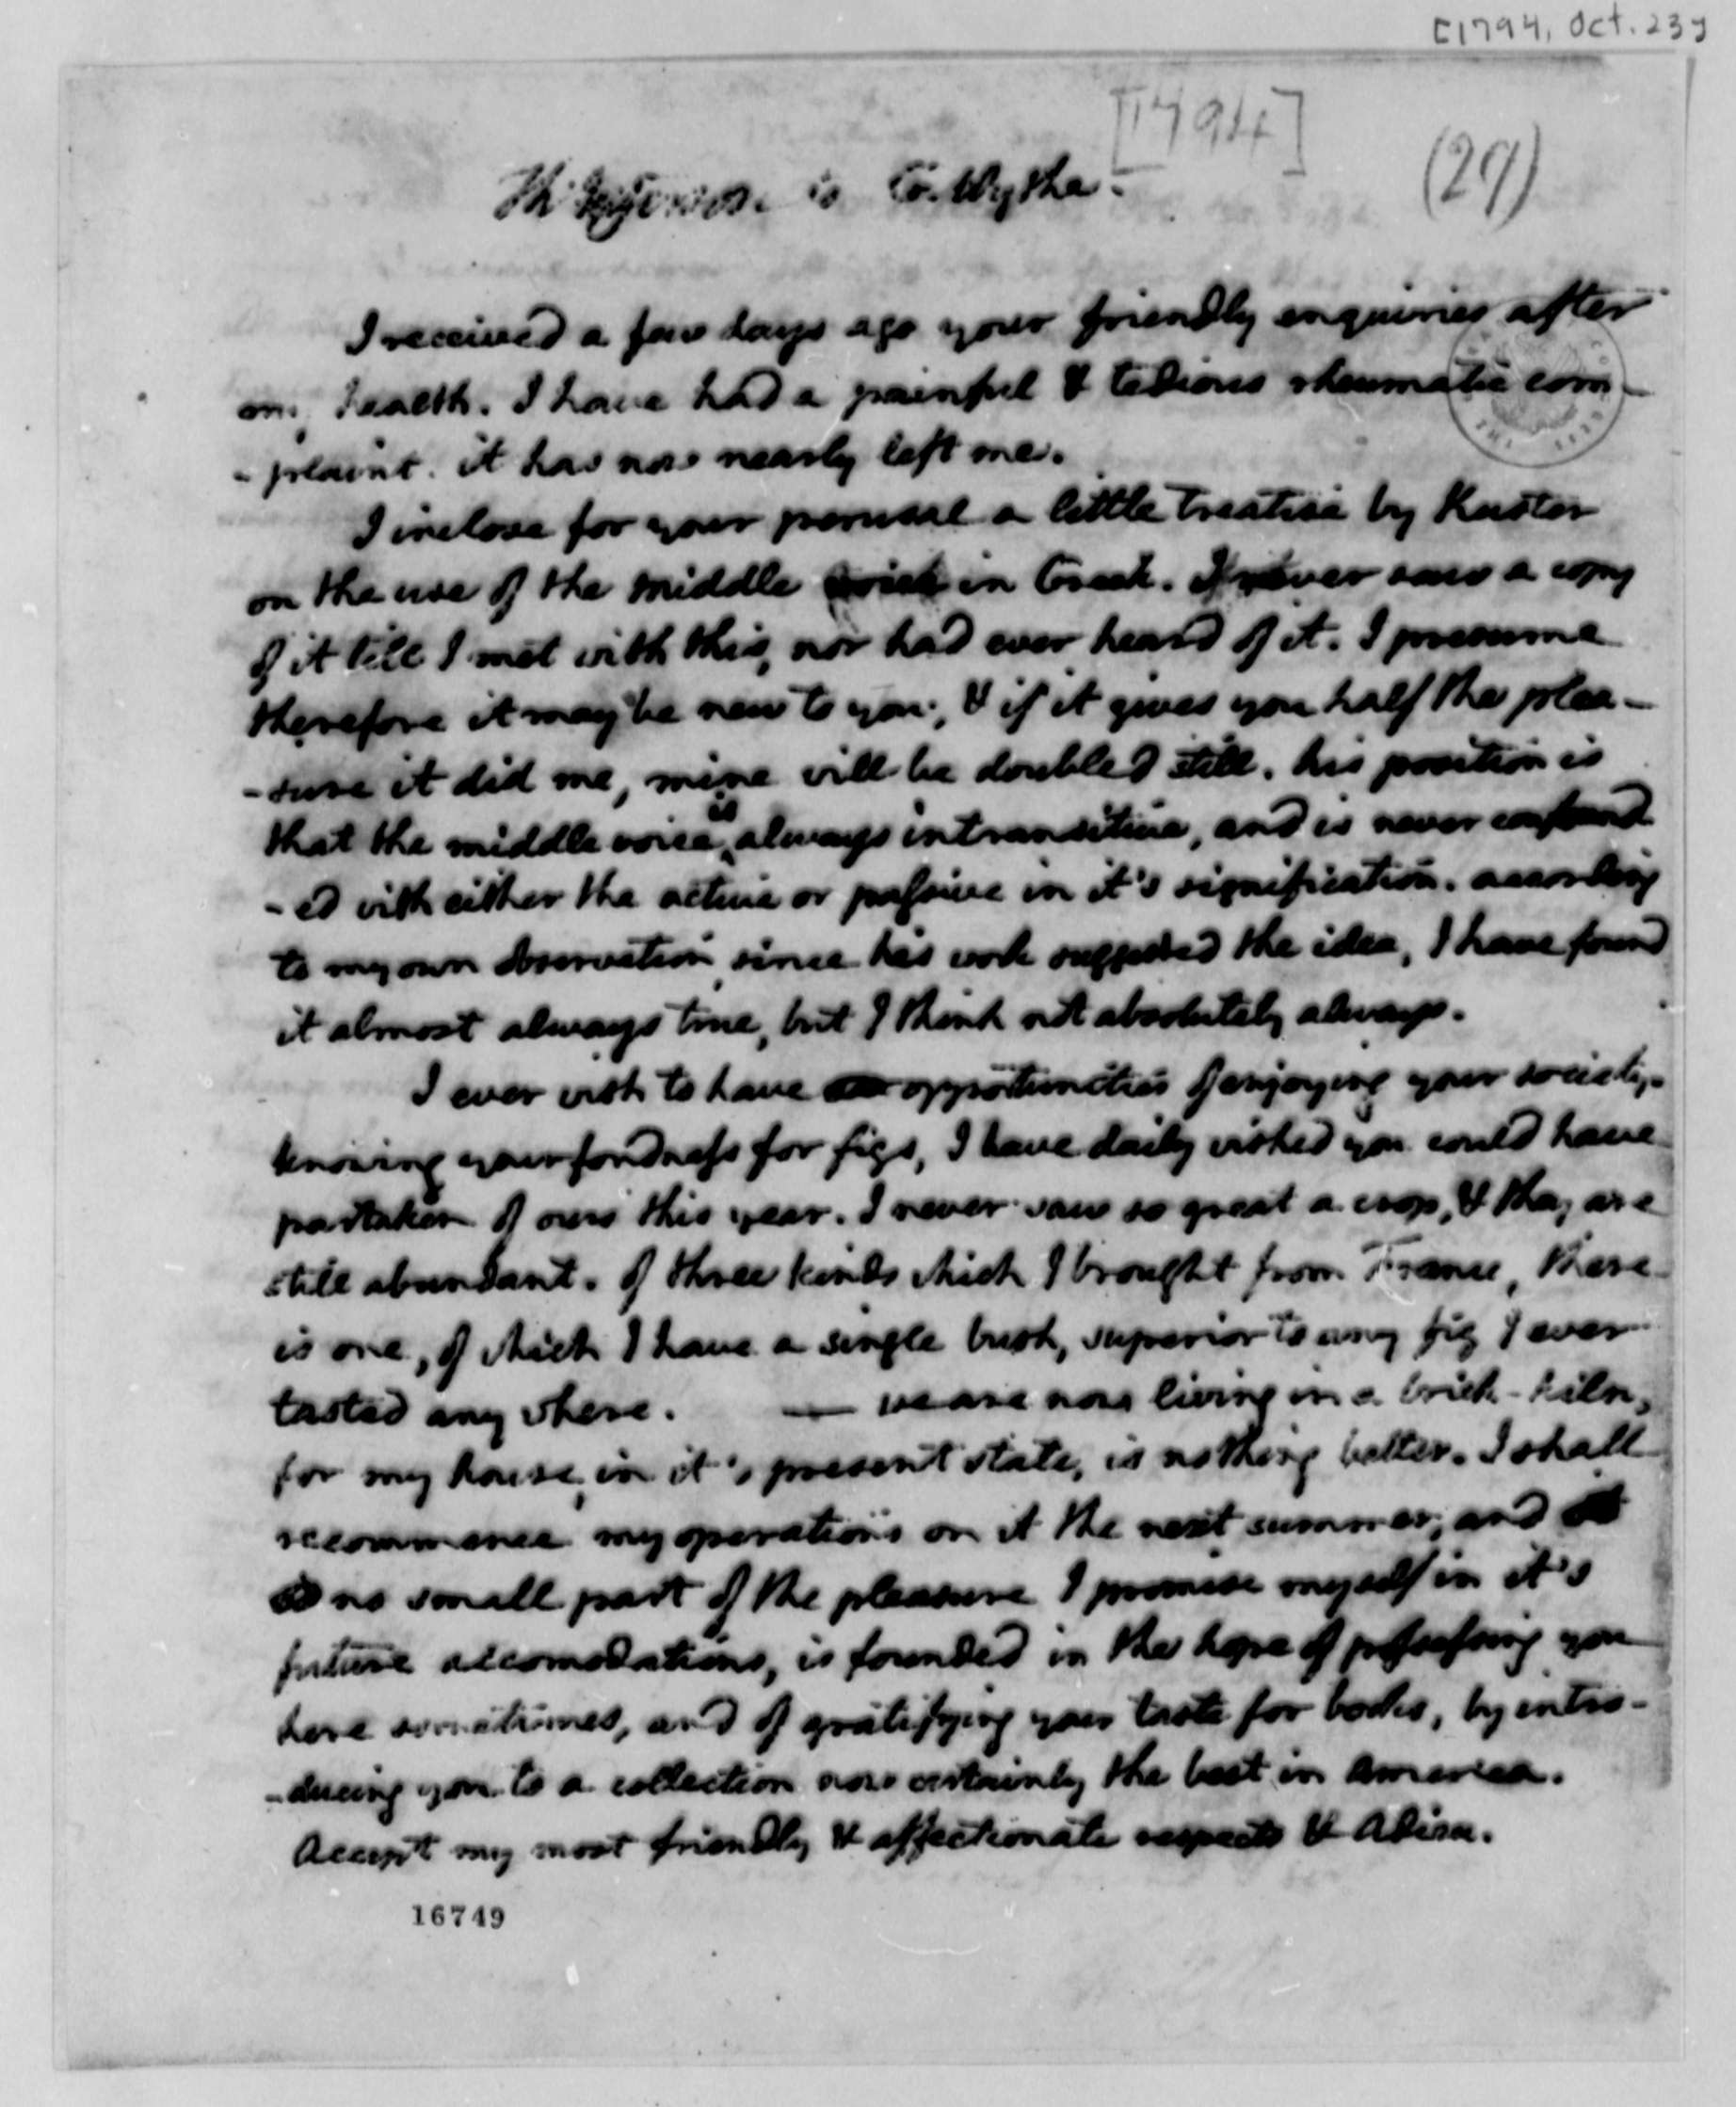 [1794, Oct. 23]
[1794]
(29)
Th: Jefferson to G. Wythe.
I received a few days ago your friendly enquiries after
my health. I have had a painful & tedious rheumatic com-
-plaint. it has now nearly left me.
I inclose for your perusal a little treatise by Kuster
on the use of the middle voice in Greek. I never saw a copy
of it till I met with this, nor had ever heard of it. I presume
therefore it may be new to you, & if it gives you half the plea-
-sure it did me, mine will be doubled still. his position is
that the middle voice is always intransitive, and is never confound
-ed with either the active or passive in it's signification. according
to my own observation since his work suggested the idea, I have found
it almost always true, but I think not absolutely always.
I ever wish to have opportunities of enjoying your society.
knowing your fondness for figs, I have daily wished you could have
partaken of ours this year. I never saw so great a crop, & they are
still abundant. of three kinds which I brought from France, there
is one, of which I have a single bush, superior to any fig I ever
tasted any where. — we are now living in a brick-kiln,
for my house, in it's present state, is nothing better. I shall
recommence my operations on it the next summer, and
no small part of the pleasure I promise myself in it's
future accomodations, is founded in the hope of possessing you
here sometimes, and of gratifying your taste for books, by intro-
-ducing you to a collection now certainly the best in America.
Accept my most friendly & affectionate respects & Adieu.
16749